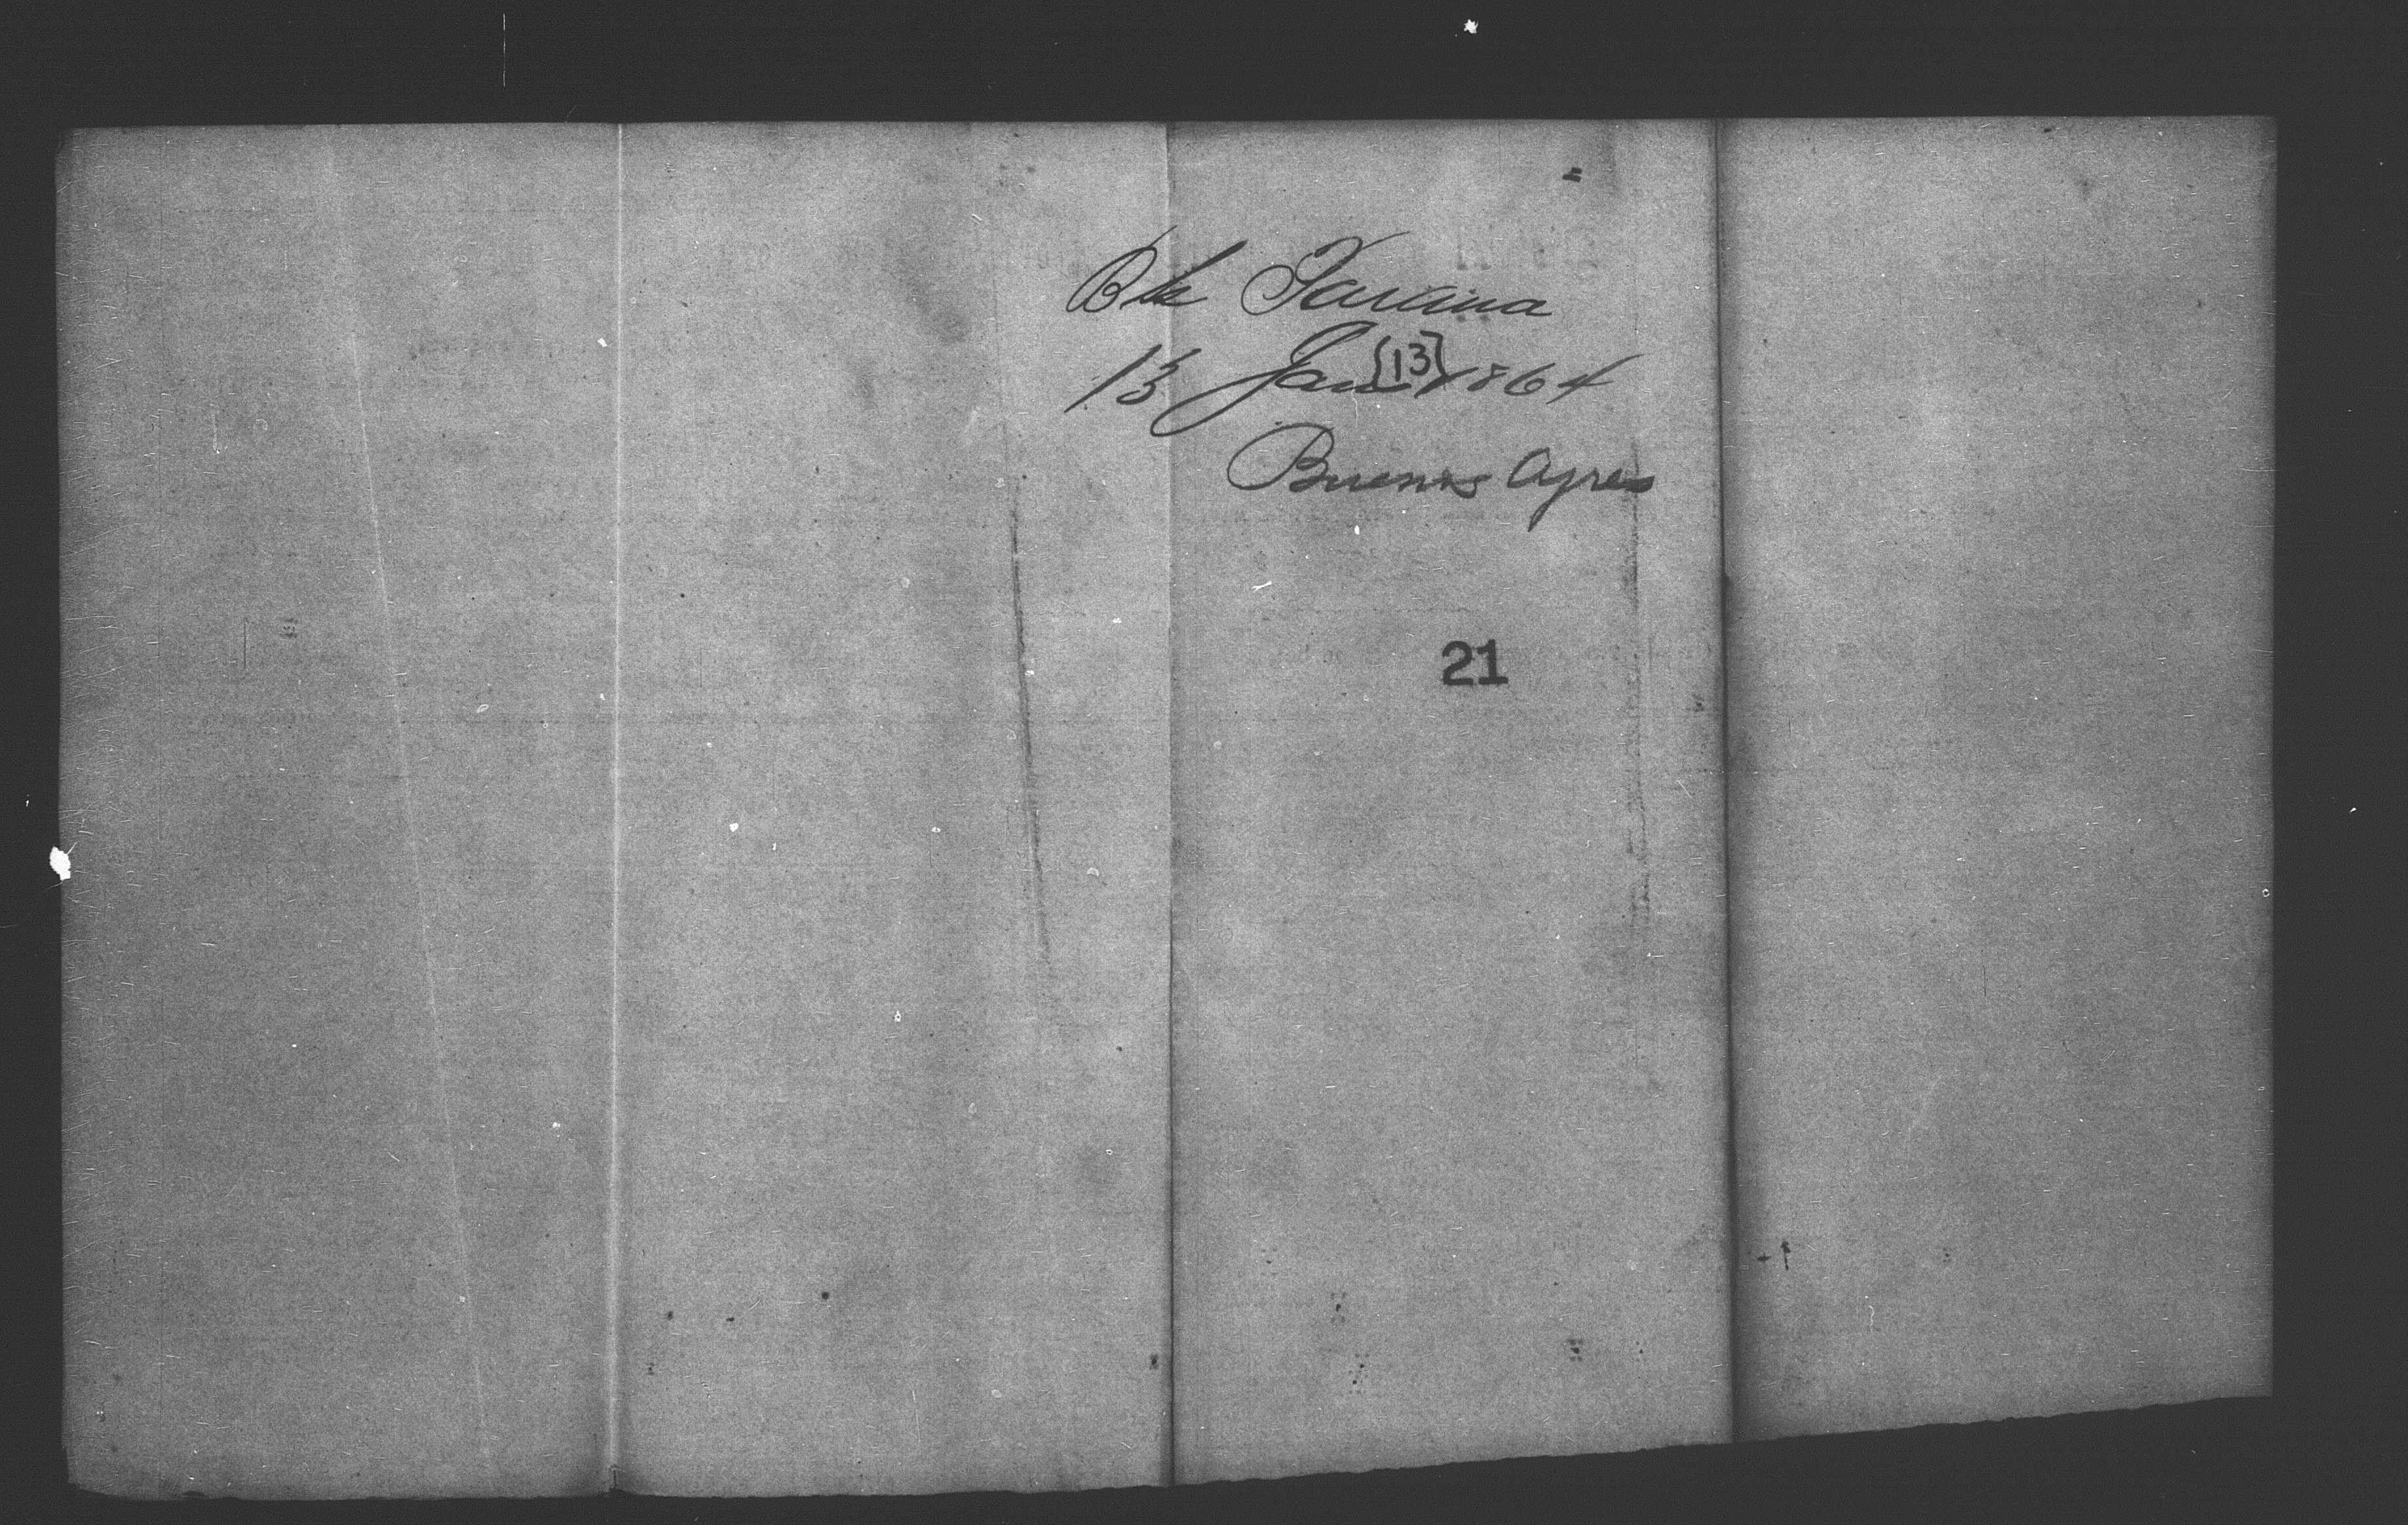 Bk Parana
13 Jan 1864
[13]
Buenos Ayres
21